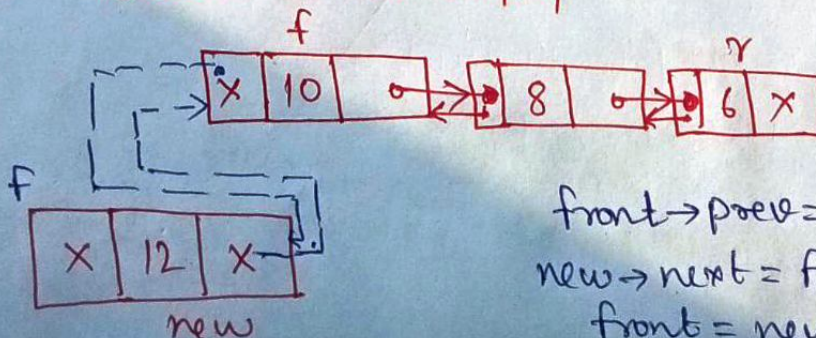 f
r
X 10 8 6 X
f
X 12 X
new
front→prev=
new→next = f
front = new